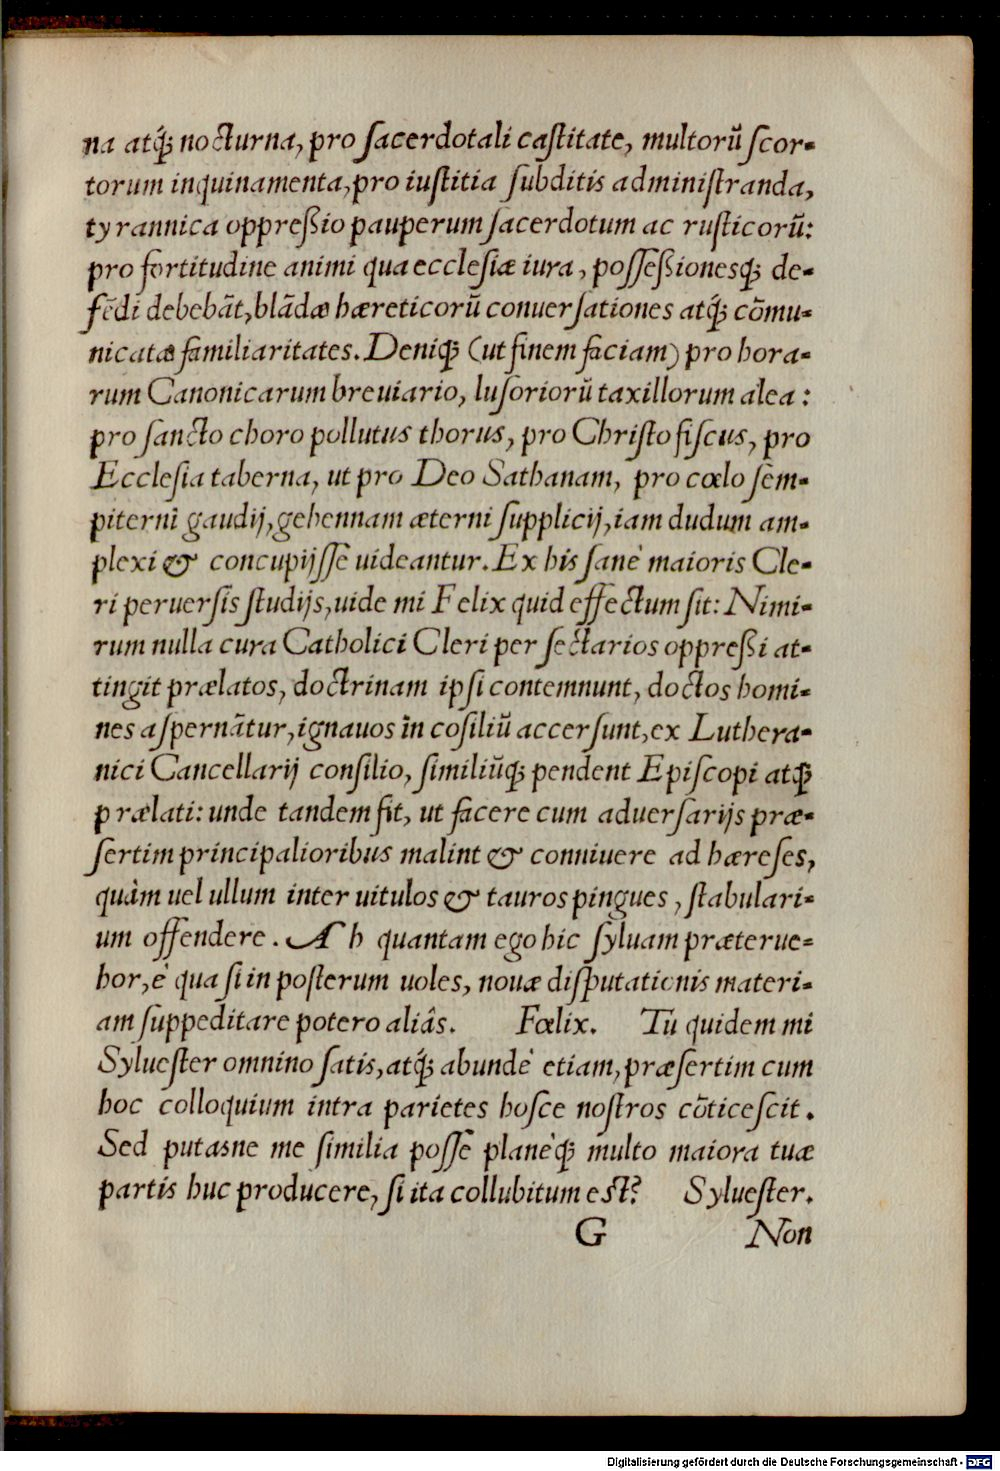 na atq́ꝫ nocturna, pro ſacerdotali caſtitate, multorũ ſcor-
torum inquinamenta, pro iuſtitia ſubditis adminiſtranda,
tyrannica oppreßio pauperum ſacerdotum ac ruſticorũ:
pro fortitudine animi qua eccleſiæ iura, poſſeßionesqꝫ de-
fẽdi debebãt, blãdæ hæreticorũ conuerſationes atq́ꝫ cõmu-
nicatæ familiaritates. Deniqꝫ (ut finem faciam) pro hora-
rum Canonicarum breuiario, luſoriorũ taxillorum alea:
pro ſancto choro pollutus thorus, pro Chriſto fiſcus, pro
Eccleſia taberna, ut pro Deo Sathanam, pro cœlo ſem-
piterni gaudij, gehennam æterni ſupplicij, iam dudum am-
plexi & concupijſſe uideantur. Ex his ſanè maioris Cle-
ri peruerſis ſtudijs, uide mi Felix quid effectum ſit: Nimi-
rum nulla cura Catholici Cleri per ſectarios oppreßi at-
tingit prælatos, doctrinam ipſi contemnunt, doctos homi-
nes aſpernãtur, ignauos in coſiliũ accerſunt, ex Luthera-
nici Cancellarij conſilio, ſimiliũqꝫ pendent Epiſcopi atqꝫ
prælati: unde tandem fit, ut facere cum aduerſarijs præ-
ſertim principalioribus malint & conniuere ad hæreſes,
quàm uel ullum inter uitulos & tauros pingues, ſtabulari-
um offendere. Ah quantam ego hic ſyluam præterue-
hor, è qua ſi in poſterum uoles, nouæ diſputationis materi-
am ſuppeditare potero aliâs. Fœlix. Tu quidem mi
Sylueſter omnino ſatis, atq́ꝫ abundè etiam, præſertim cum
hoc colloquium intra parietes hoſce noſtros cõticeſcit.
Sed putasne me ſimilia poſſe planèqꝫ multo maiora tuæ
partis huc producere, ſi ita collubitum eſt? Sylueſter.
G Non
Digitalisierung gefördert durch die Deutsche Forschungsgemeinschaft - DFG